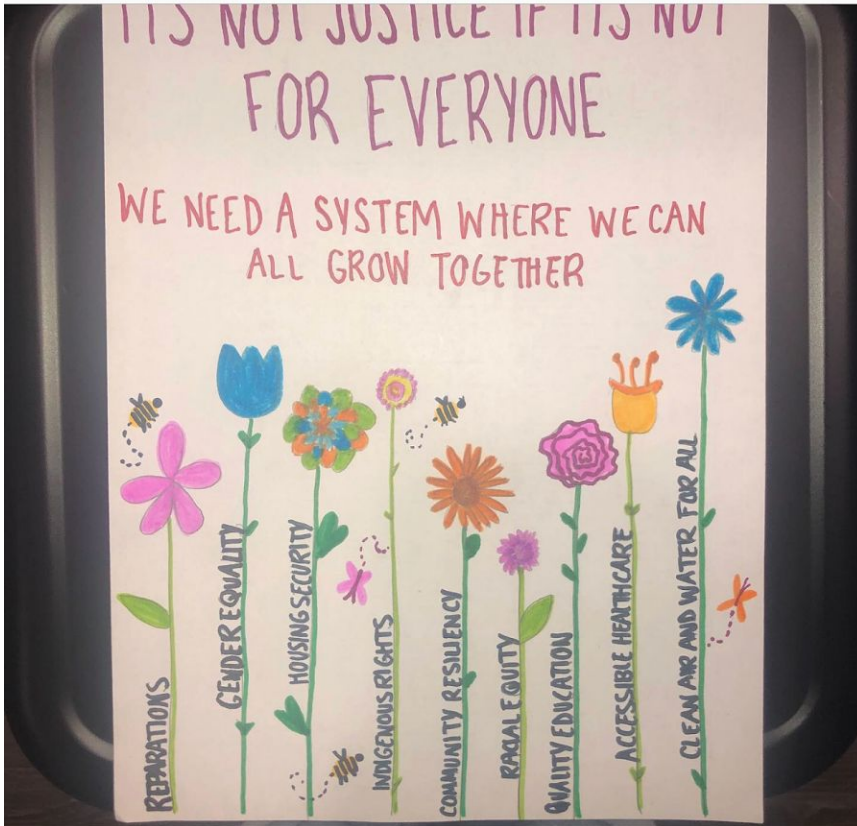 ITS NOT JUSTICE IF ITS NOT
FOR EVERYONE
WE NEED A SYSTEM WHERE WE CAN
ALL GROW TOGETHER
REPARATIONS
GENDER EQUALITY
HOUSING SECURITY
INDIGENOUS RIGHTS
COMMUNITY RESILIENCY
RACIAL EQUITY
QUALITY EDUCATION
ACCESSIBLE HEALTHCARE
CLEAN AIR AND WATER FOR ALL